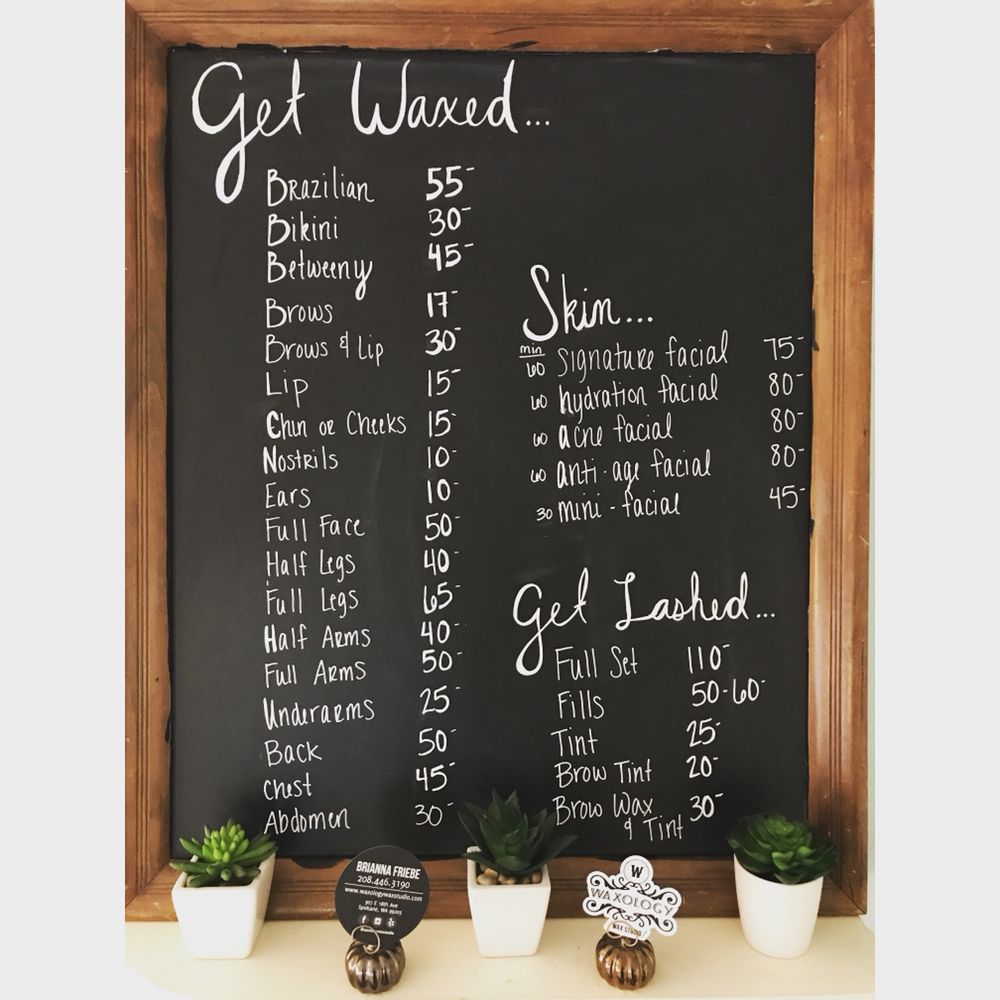 Get Waxed...
Brazilian 55-
Bikini 30-
Betweeny 45-
Brows 17-
Brows & Lip 30-
Lip 15-
Chin or Cheeks 15-
Nostrils 10-
Ears 10-
Full Face 50-
Half Legs 40-
Full Legs 65-
Half Arms 40-
Full Arms 50-
Underarms 25-
Back 50-
Chest 45-
Abdomen 30-
Skin...
min
60 signature facial 75-
60 hydration facial 80-
60 acne facial 80-
60 anti-age facial 80-
30 mini-facial 45-
Get Lashed...
Full Set 110-
Fills 50-60-
Tint 25-
Brow Tint 20-
Brow Wax 30-
& Tint
BRIANNA FRIEBE
208.446.3190
www.waxologywaxstudio.com
907 E 18th ave
Spokane, WA 99203
W
WAXOLOGY
WAX STUDIO